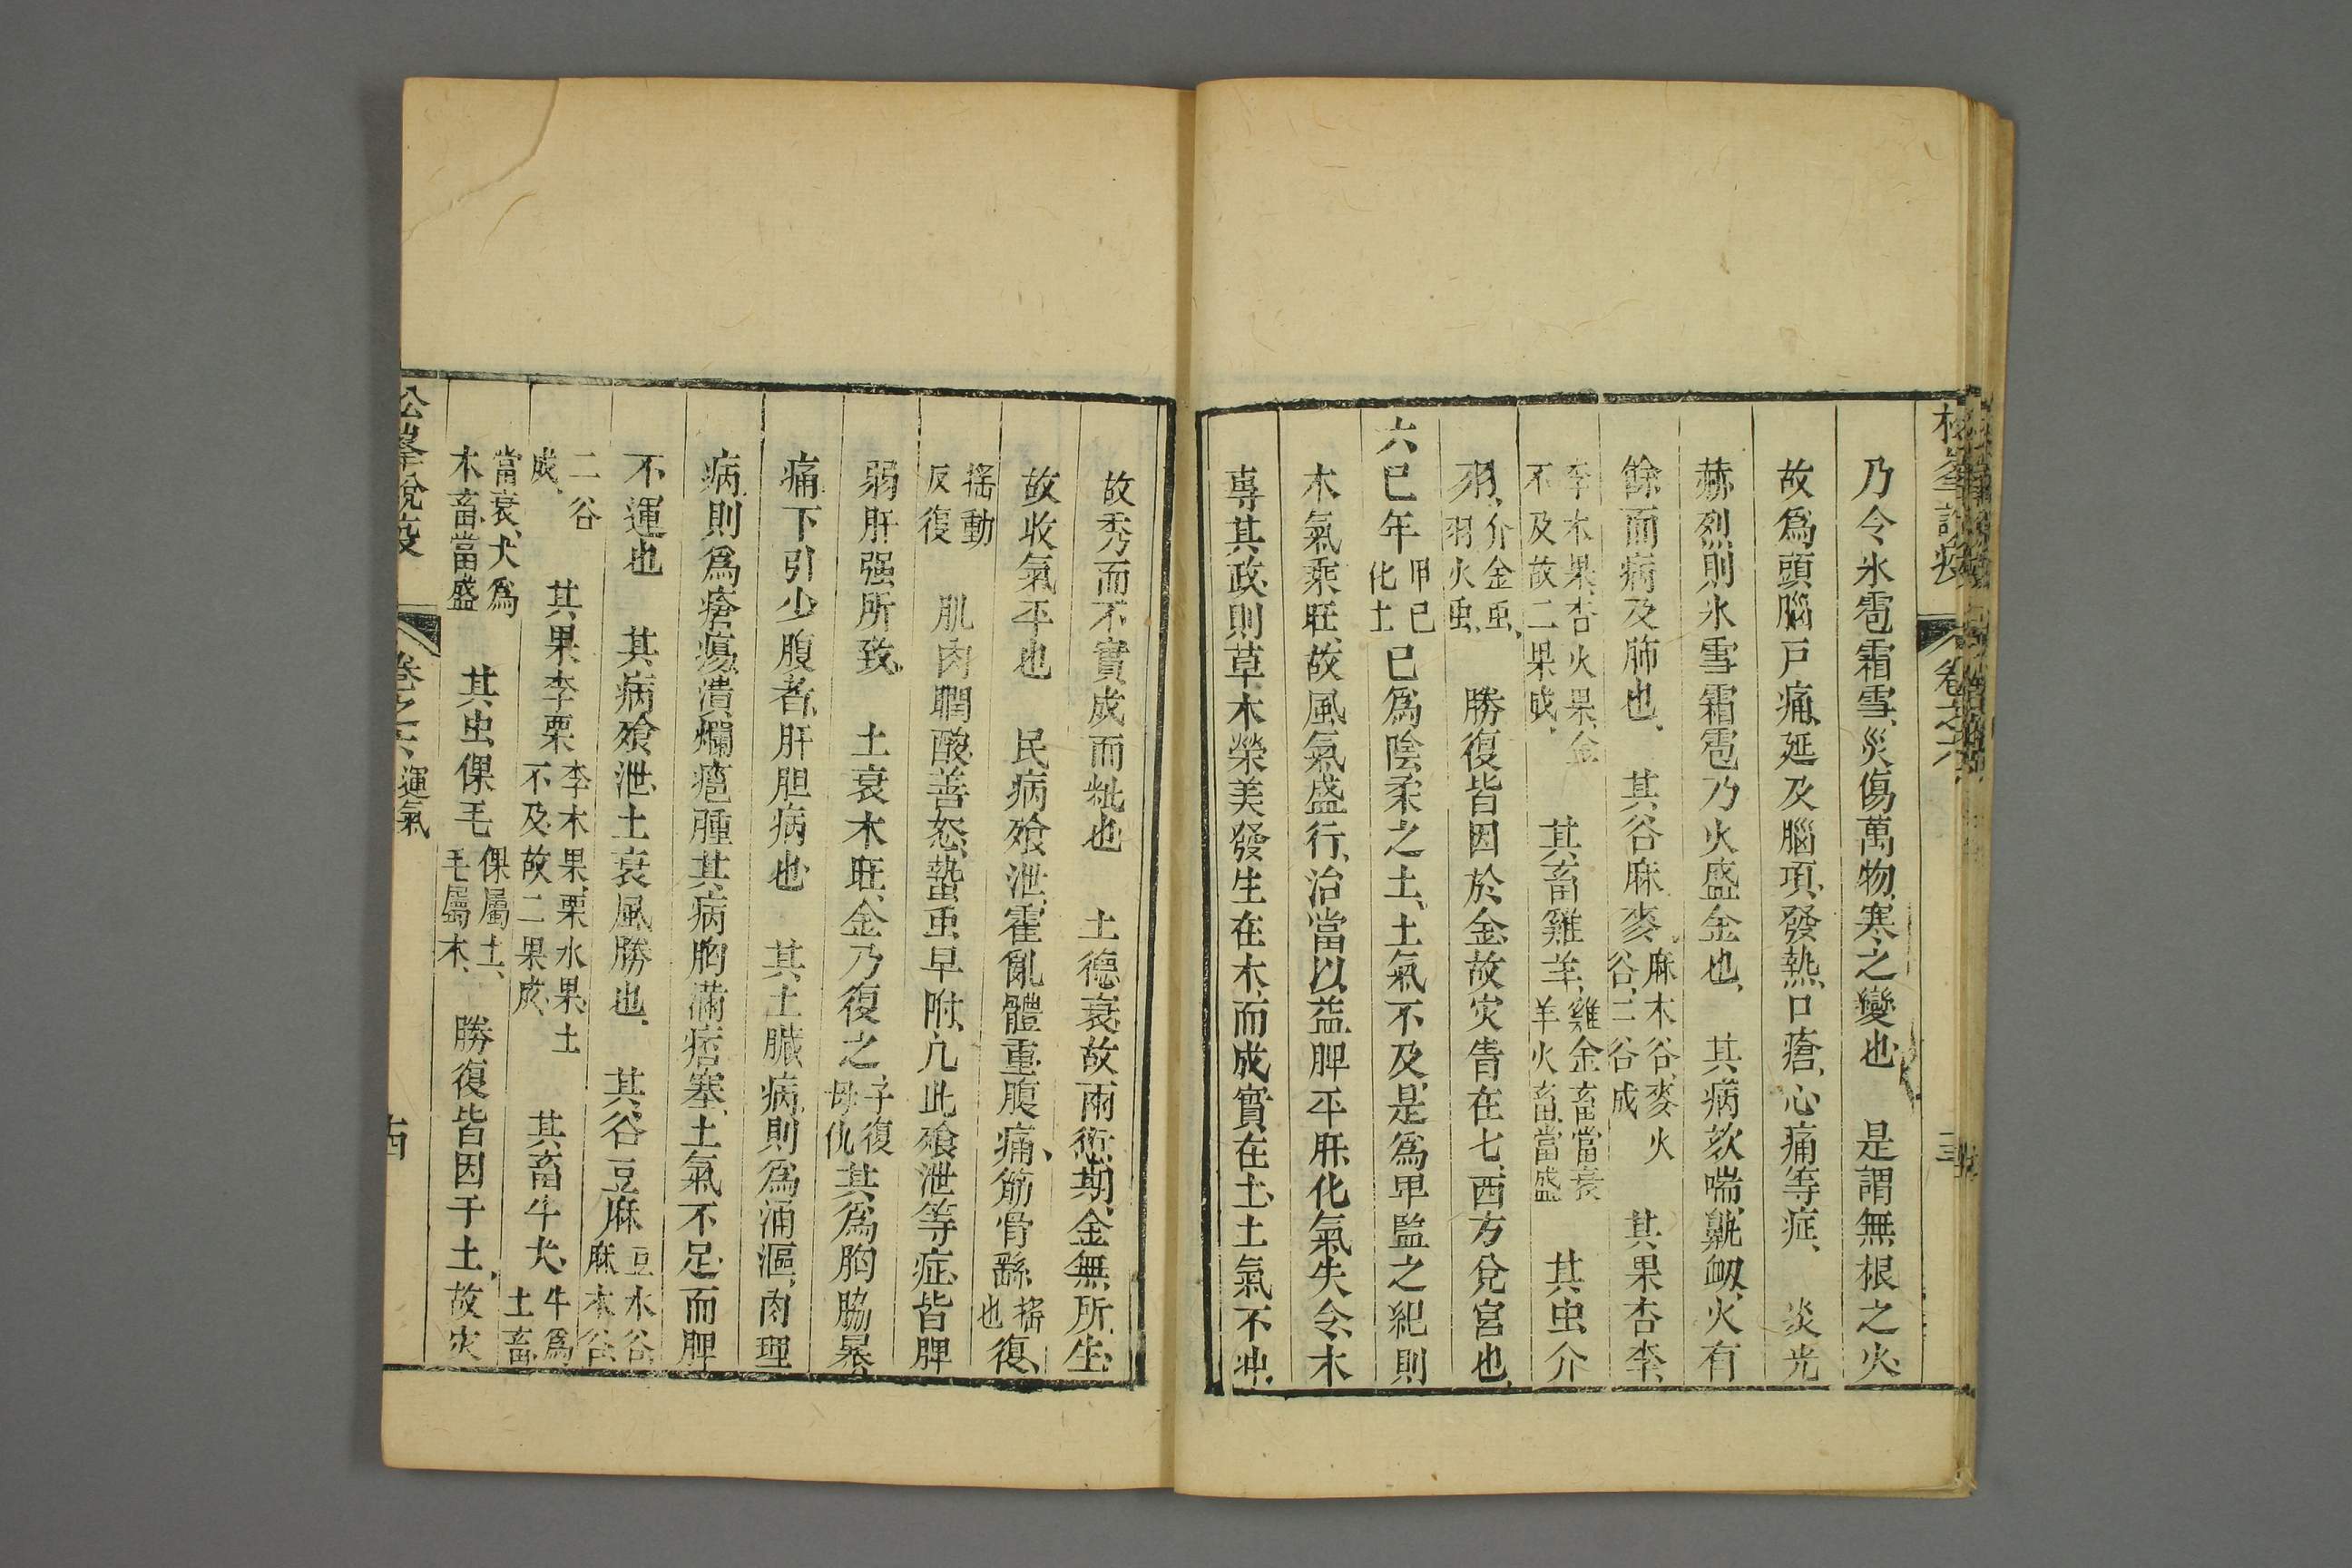 松峯說疫 卷之六
乃令氷雹霜雪、災傷萬物、寒之變也 是謂無根之火、
故爲頭腦戸痛、延及腦項、發熱、口瘡、心痛等症、 炎光
赫烈、則氷雪霜雹乃火盛金也、 其病欬喘、鼽衂、火有
餘而病及肺也、 其谷麻麥、麻木谷、麥火谷、二谷成 其果杏李、
李木果、杏火果、金不及故二果成、 其畜雞羊、雞金畜當衰羊火畜、當盛 其虫介
羽、介金虫、羽火虫、 勝復皆因於金、故灾眚在七、西方兌宮也、
六巳年甲己化土 已爲陰柔之土、土氣不及、是爲卑監之紀則
木氣乘旺、故風氣盛行、治當以益脾平肝、化氣失令、木
專其政、則草木榮美、發生在木、而成實在土、土氣不冲、
故秀而不實成而粃也 土德衰、故雨愆期、金無所生、
故收氣平也 民病飱泄、霍亂、體重、腹痛、筋骨繇搖也復、
搖動反復 肌肉瞤酸、善怒、蟄虫早附、凢此飱泄等症、皆脾
弱肝强所致、 土衰木旺、金乃復之子復母仇其爲胸脇暴
痛下引少腹者、肝胆病也 其土臟病、則爲涌漚、肉理
病、則爲瘡瘍、潰爛瘡腫、其病胸滿痞塞、土氣不足、而脾
不運也 其病飱泄、土衰風勝也、 其谷豆麻豆水谷麻木谷、
二谷成、 其果李栗李木果、栗水果、土不及、故二果成、 其畜牛犬、牛爲土畜、
當衰、犬爲木畜、當盛 其虫倮毛倮屬土、毛屬木、 勝復皆因于土、故灾
松峯說疫 卷之六 運氣 十四